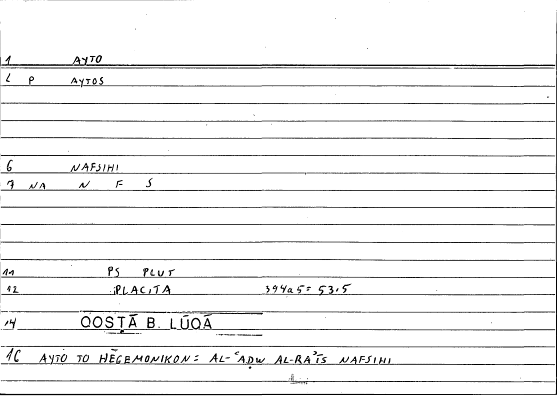 1 AYTO
2 P AYTOS
6 NAFSIHI
7 NA N F S
11 PS PLUT
12 PLACITA 394a5 = 53.5
14 QOSṬĀ B. LŪQĀ
16 AYTO TO HĒGEMONIKON: AL-ʿAḌW AL-RAʾĪS NAFSIHI